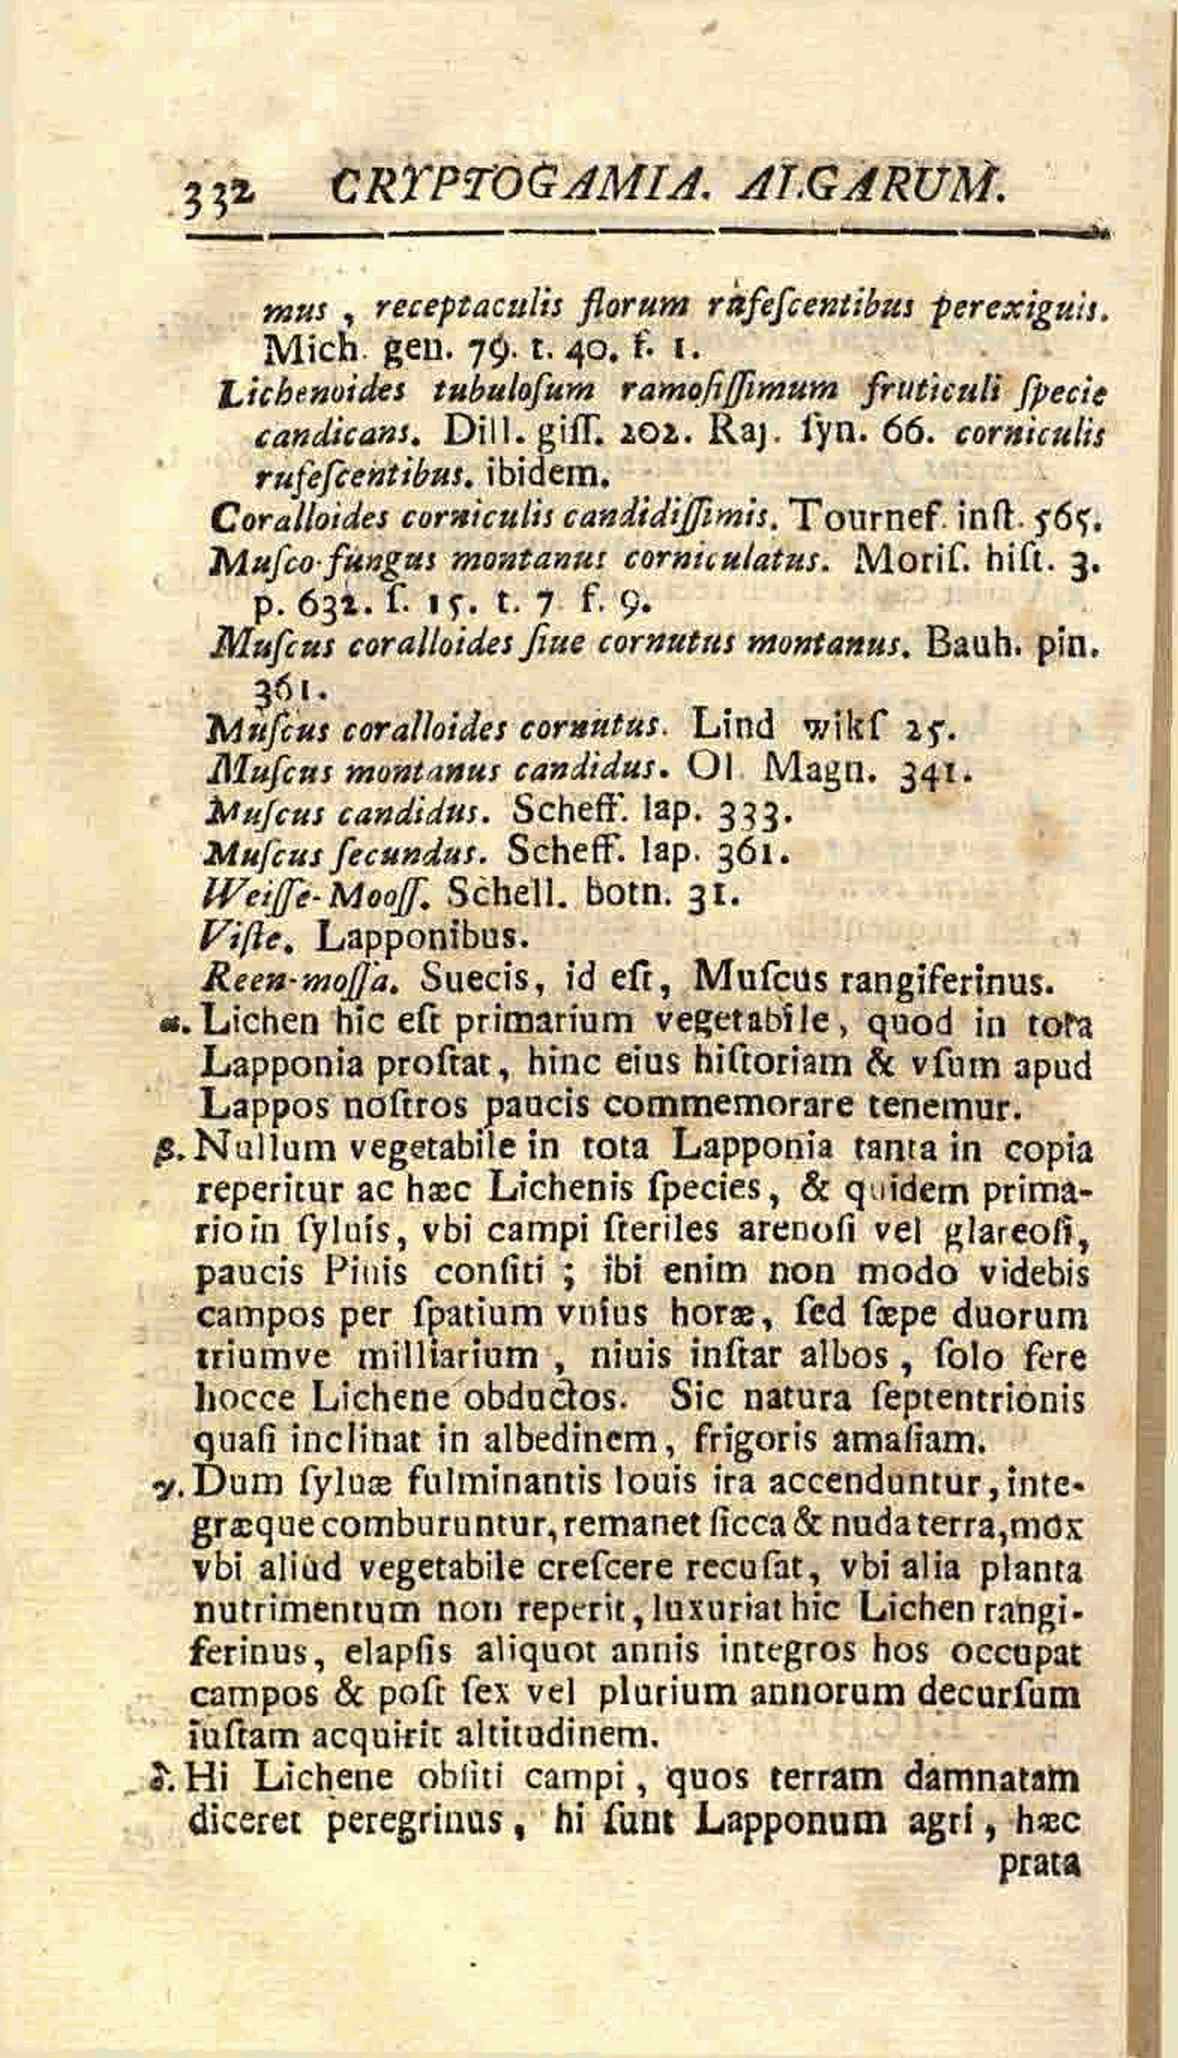 332 CRYPTOGAMIA. ALGARUM.
mus, receptaculis florum rufeſcentibus perexiguis.
Mich. gen. 79. t. 40. f. 1.
Lichenoides tubuloſum ramoſiſſimum fruticuli ſpecie
candicans. Dill. giſſ. 202. Raj. ſyn. 66. corniculis
rufeſcentibus. ibidem.
Coralloides corniculis candidiſſimis. Tournef. inſt. 565.
Muſco-fungus montanus corniculatus. Moriſ. hiſt. 3.
p. 632. ſ. 15. t. 7 f. 9.
Muſcus coralloides ſiue cornutus montanus. Bauh. pin.
361.
Muſcus coralloides cornutus. Lind wikſ 25.
Muſcus montanus candidus. Ol. Magn. 341.
Muſcus candidus. Scheff. lap. 333.
Muſcus ſecundus. Scheff. lap. 361.
Weiſſe-Mooſſ. Schell. botn. 31.
Viſte. Lapponibus.
Reen-moſſa. Suecis, id eſt, Muſcus rangiferinus.
α. Lichen hic eſt primarium vegetabile, quod in tota
Lapponia proſtat, hinc eius hiſtoriam & vſum apud
Lappos noſtros paucis commemorare tenemur.
β. Nullum vegetabile in tota Lapponia tanta in copia
reperitur ac hæc Lichenis ſpecies, & quidem prima-
rio in ſyluis, vbi campi ſteriles arenoſi vel glareoſi,
paucis Pinis conſiti ; ibi enim non modo videbis
campos per ſpatium vnius horæ, ſed ſæpe duorum
triumve milliarium, niuis inſtar albos, ſolo fere
hocce Lichene obductos. Sic natura ſeptentrionis
quaſi inclinat in albedinem, frigoris amaſiam.
γ. Dum ſyluæ fulminantis Iouis ira accenduntur, inte-
græque comburuntur, remanet ſicca & nuda terra, mox
vbi aliud vegetabile creſcere recuſat, vbi alia planta
nutrimentum non reperit, luxuriat hic Lichen rangi-
ferinus, elapſis aliquot annis integros hos occupat
campos & poſt ſex vel plurium annorum decurſum
iuſtam acquirit altitudinem.
δ. Hi Lichene obſiti campi, quos terram damnatam
diceret peregrinus, hi ſunt Lapponum agri, hæc
prata